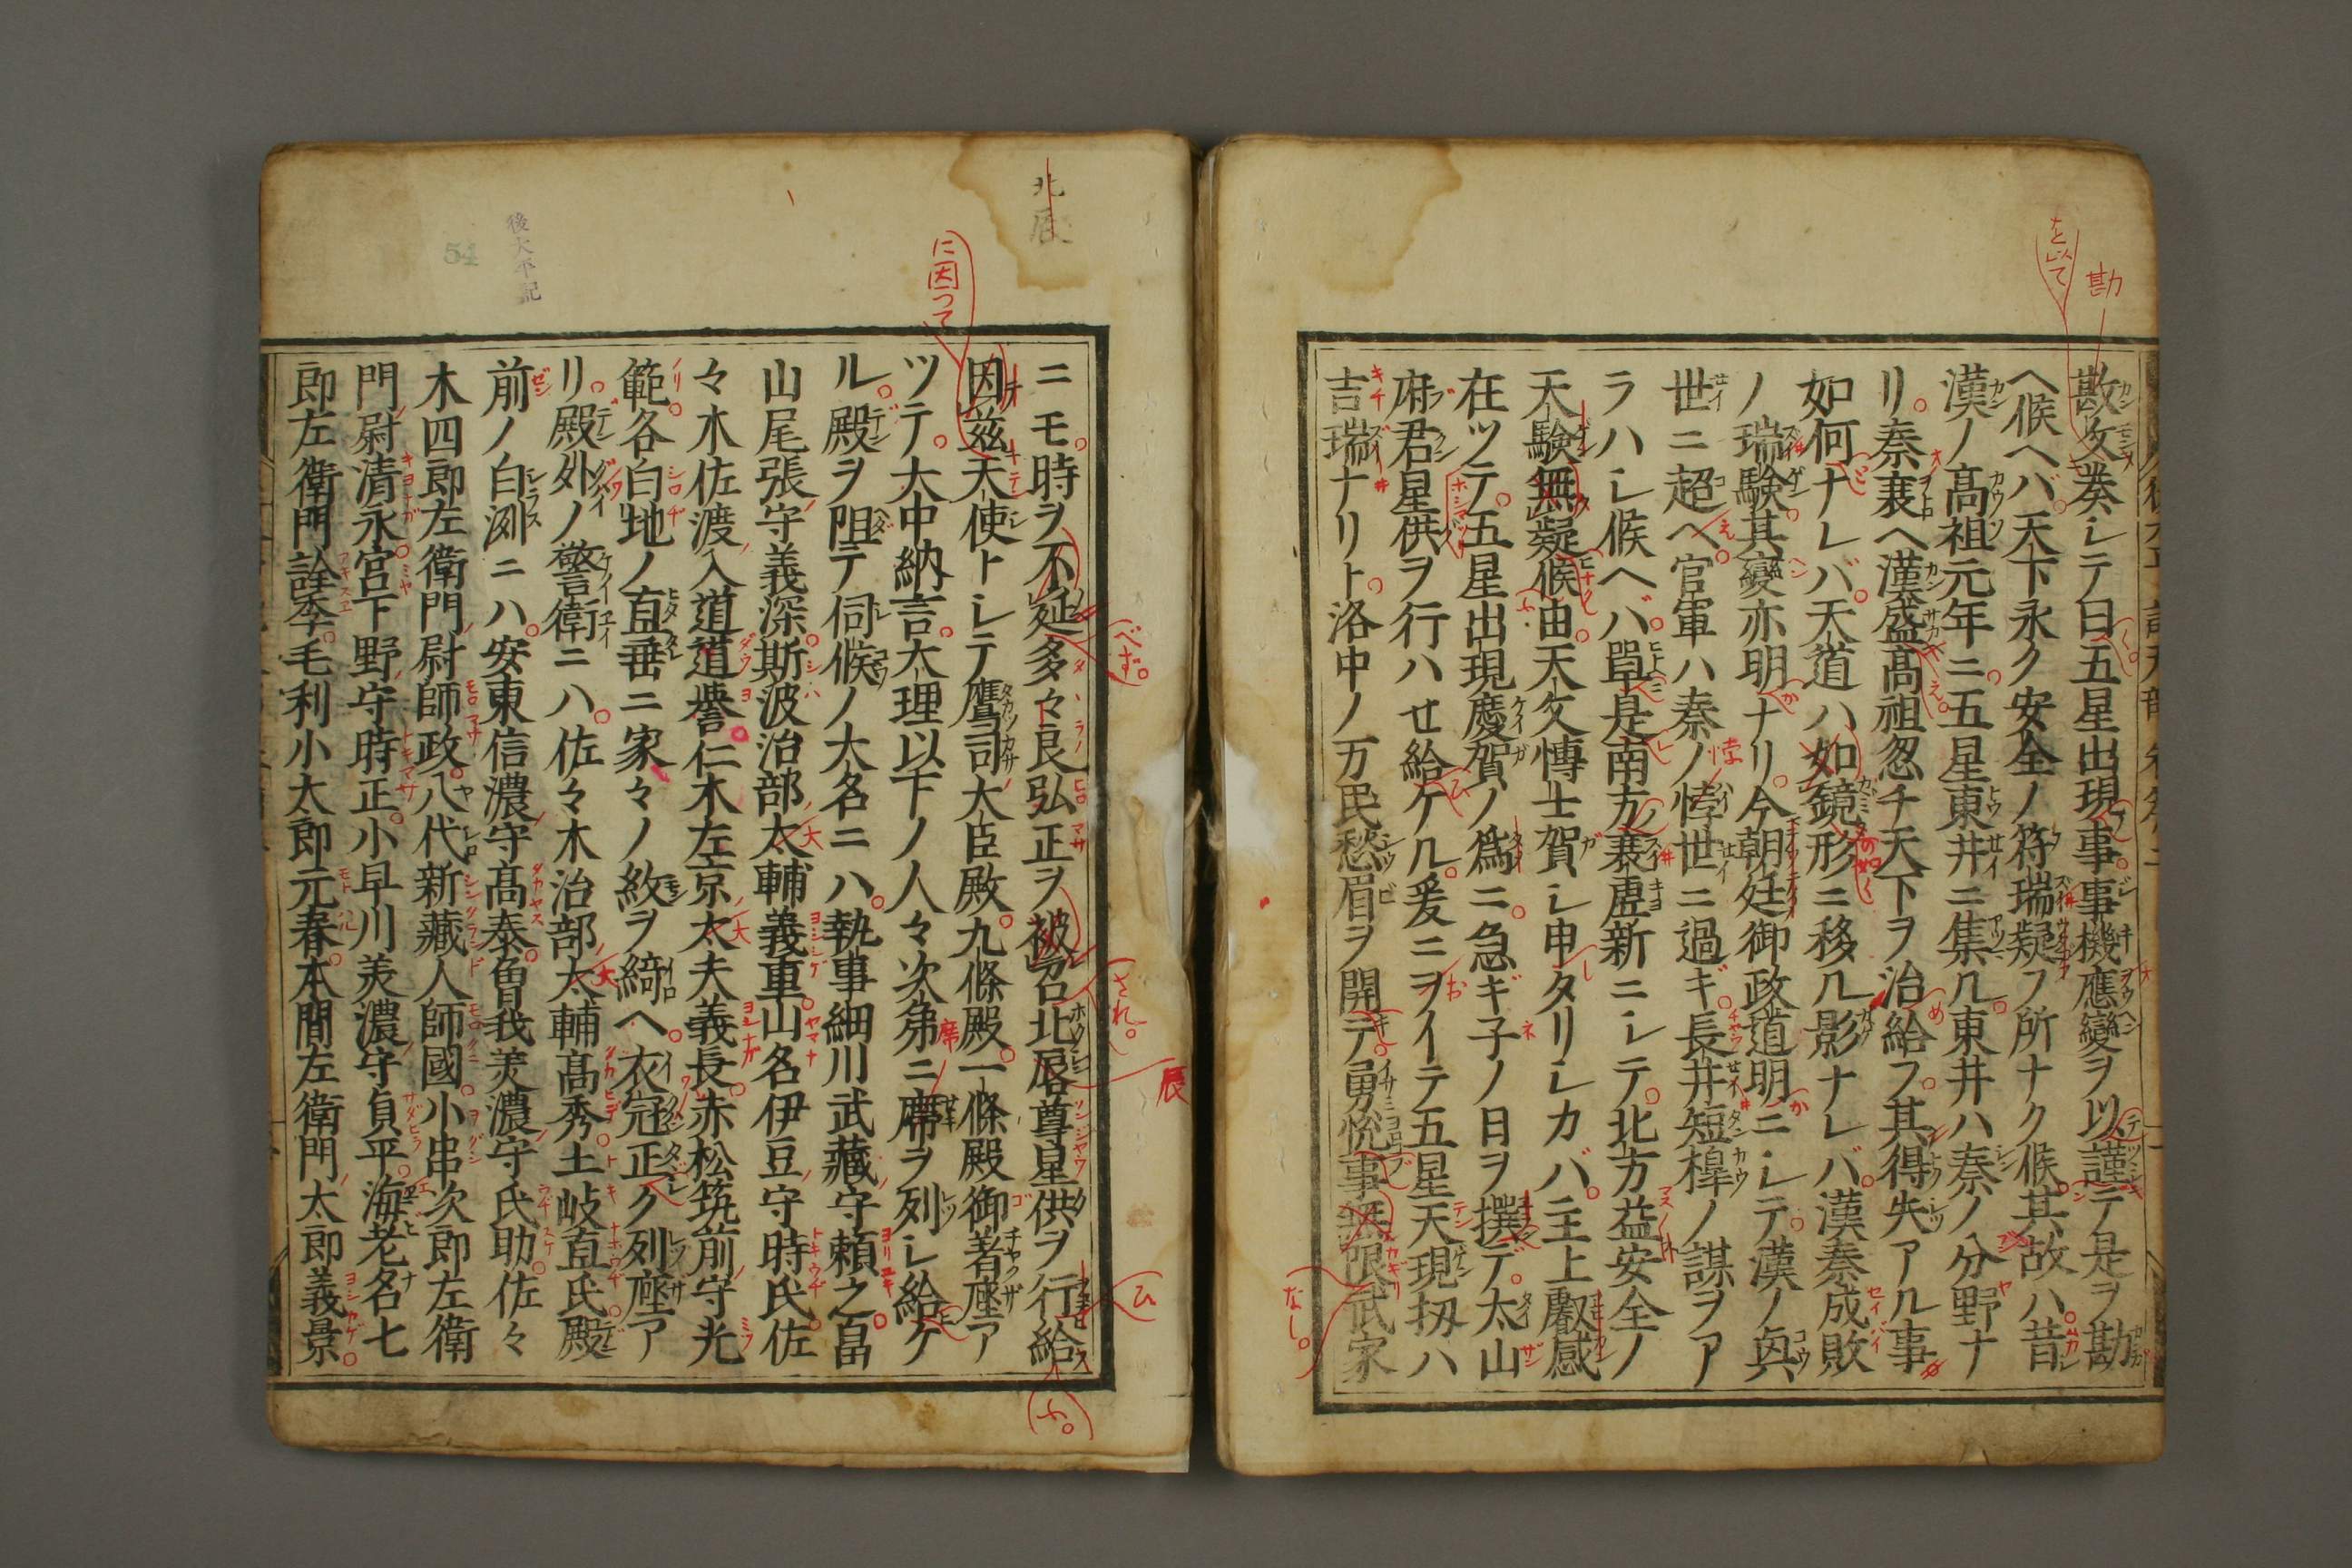 勘文奏シテ曰五星出現事事機應變ヲ以謹テ是ヲ勘
ヘ候ヘバ天下永ク安全ノ符瑞疑フ所ナク候其故ハ昔
漢ノ髙祖元年ニ五星東井ニ集ル東井ハ秦ノ分野ナ
リ秦衰ヘ漢盛髙祖忽チ天下ヲ治給フ其得失アル事
如何ナレバ天道ハ如鏡形ニ移ル影ナレバ漢秦成敗
ノ瑞驗其變亦明ナリ今朝廷御政道明ニシテ漢ノ興
世ニ超ヘ官軍ハ秦ノ悖世ニ過ギ長井短槹ノ謀ヲア
ラハシ候ヘバ單是南方衰虚新ニシテ北方益安全ノ
天驗無疑候由天文博士賀シ申タリシカバ主上叡感
在ツテ五星出現慶賀ノ爲ニ急ギ子ノ日ヲ撰デ太山
府君星供ヲ行ハせ給ケル爰ニヲイテ五星天現扨ハ
吉瑞ナリト洛中ノ万民愁眉ヲ開テ勇悦事無限武家
ニモ時ヲ不延多々良弘正ヲ被召北辰尊星供ヲ行給
因茲天使トシテ鷹司大臣殿九條殿一條殿御著座ア
ツテ大中納言大理以下ノ人々次第ニ席ヲ列シ給ケ
ル殿ヲ阻テ伺候ノ大名ニハ執事細川武藏守賴之畠
山尾張守義深斯波治部太輔義重山名伊豆守時氏佐
々木佐渡入道道譽仁木左京太夫義長赤松筑前守光
範各白地ノ直垂ニ家々ノ紋ヲ綺ヘ衣冠正ク列座ア
リ殿外ノ警衛ニハ佐々木治部太輔髙秀土岐直氏殿
前ノ白洲ニハ安東信濃守髙泰曽我美濃守氏助佐々
木四郎左衛門尉師政八代新藏人師國小串次郎左衛
門尉清永宮下野守時正小早川美濃守貞平海老名七
郎左衛門詮季毛利小太郎元春本間左衛門太郎義景
を以て
勘
に因って
北辰
後太平記
54
べず。
され。
辰
ひ
ふ。
なし。